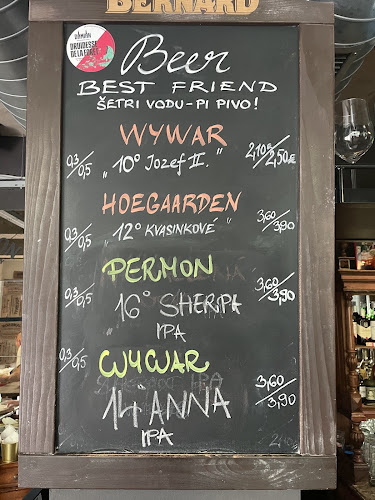 BERNARD
DRUIDESSE
DE LA FORÊT
Beer
BEST FRIEND
ŠETRI VODU-PI PIVO!
WYWAR
0,3/0,5 „10° Jozef II.“ 2,10€/2,50€
HOEGAARDEN
0,3/0,5 „12° KVASINKOVÉ“ 3,60/3,90
PERMON
0,3/0,5 16° SHERPA 3,60/3,90
IPA
0,3/0,5 WYWAR
14° ANNA 3,60/3,90
IPA